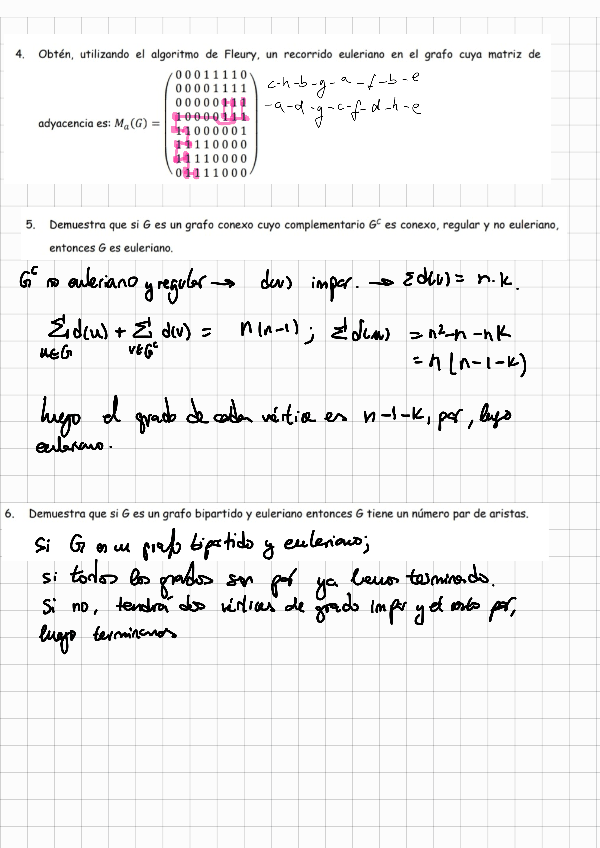 4. Obtén, utilizando el algoritmo de Fleury, un recorrido euleriano en el grafo cuya matriz de
adyacencia es: Mₐ(G) =
0 0 0 1 1 1 1 0
0 0 0 0 1 1 1 1
0 0 0 0 0 1 1 1
1 0 0 0 0 1 1 1
1 1 0 0 0 0 0 1
1 1 1 1 0 0 0 0
1 1 1 1 0 0 0 0
0 1 1 1 1 0 0 0
c-h-b-g-a-f-b-e
-a-d-g-c-f-d-h-e
5. Demuestra que si G es un grafo conexo cuyo complementario Gᶜ es conexo, regular y no euleriano,
entonces G es euleriano.
Gᶜ no euleriano y regular → d(v) impar. → Σd(v) = n·k.
Σ d(u) + Σ d(v) = n(n-1) ; Σ d(u) = n²-n-nk
u∈G v∈Gᶜ
= n(n-1-k)
luego el grado de cada vértice es n-1-k, par, luego
euleriano.
6. Demuestra que si G es un grafo bipartido y euleriano entonces G tiene un número par de aristas.
Si G es un grafo bipartido y euleriano;
si todos los grados son par ya hemos terminado.
Si no, tendrá dos vértices de grado impar y el resto par,
luego terminamos